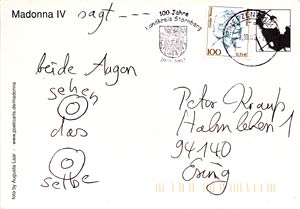 Madonna IV
sagt ---
100 Jahre
Landkreis Starnberg
100
beide Augen
sehen
das
selbe
Peter Kraup
Halmlehen 1
94140
Ering
foto by Augusta Laar - www.poeticarts.de/madonna